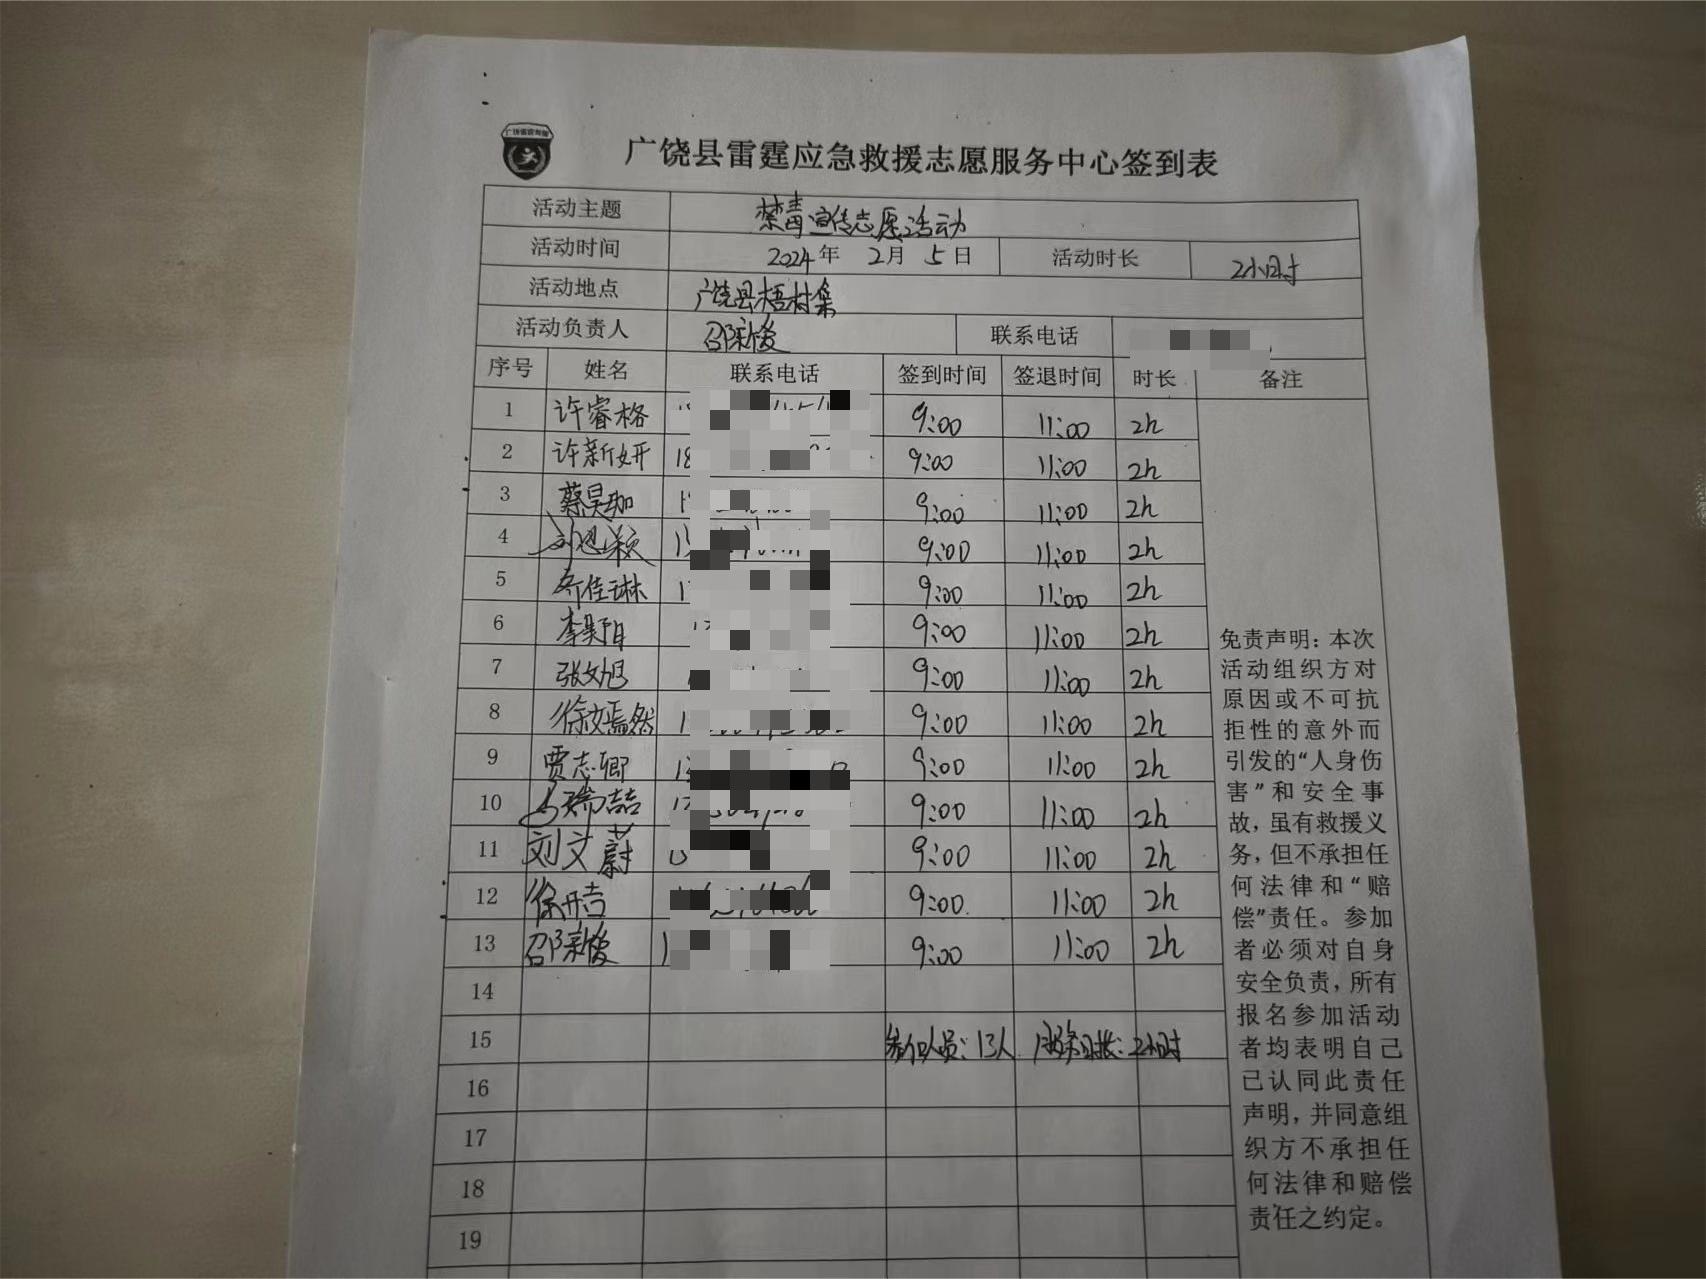 广饶县雷霆应急救援志愿服务中心签到表
活动主题 禁毒宣传志愿活动
活动时间 2024年 2月 5日 活动时长 2小时
活动地点 广饶县梧村集
活动负责人 邵新俊 联系电话
序号 姓名 联系电话 签到时间 签退时间 时长 备注
1 许睿格 9:00 11:00 2h
2 许新妍 18 9:00 11:00 2h
3 蔡昊珈 9:00 11:00 2h
4 9:00 11:00 2h
5 乔佳琳 9:00 11:00 2h
6 李昊阳 9:00 11:00 2h
7 张文旭 9:00 11:00 2h
8 徐文嫣然 9:00 11:00 2h
9 贾志卿 9:00 11:00 2h
10 马瑞喆 9:00 11:00 2h
11 刘文蔚 9:00 11:00 2h
12 9:00 11:00 2h
13 邵新俊 9:00 11:00 2h
14
15 参加人员：13人 服务时长：2小时
16
17
18
19
免责声明：本次
活动组织方对
原因或不可抗
拒性的意外而
引发的“人身伤
害”和安全事
故，虽有救援义
务，但不承担任
何法律和“赔
偿”责任。参加
者必须对自身
安全负责，所有
报名参加活动
者均表明自己
已认同此责任
声明，并同意组
织方不承担任
何法律和赔偿
责任之约定。